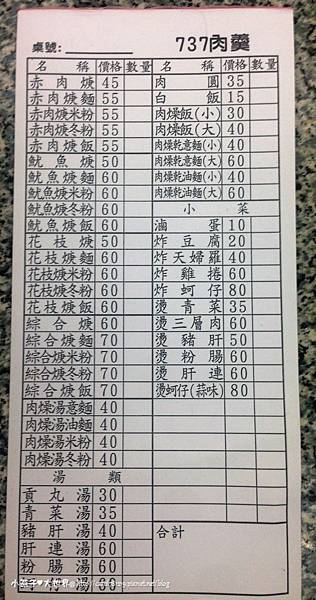 桌號:
737肉羹
名稱 價格 數量
赤肉焿 45
赤肉焿麵 55
赤肉焿米粉 55
赤肉焿冬粉 55
赤肉焿飯 55
魷魚焿 50
魷魚焿麵 60
魷魚焿米粉 60
魷魚焿冬粉 60
魷魚焿飯 60
花枝焿 50
花枝焿麵 60
花枝焿米粉 60
花枝焿冬粉 60
花枝焿飯 60
綜合焿 60
綜合焿麵 70
綜合焿米粉 70
綜合焿冬粉 70
綜合焿飯 70
肉燥湯意麵 40
肉燥湯油麵 40
肉燥湯米粉 40
肉燥湯冬粉 40
湯類
貢丸湯 30
青菜湯 35
豬肝湯 40
肝連湯 60
粉腸湯 60
名稱 價格 數量
肉圓 35
白飯 15
肉燥飯(小) 30
肉燥飯(大) 40
肉燥乾意麵(小) 40
肉燥乾意麵(大) 60
肉燥乾油麵(小) 40
肉燥乾油麵(大) 60
小菜
滷蛋 10
炸豆腐 20
炸天婦羅 40
炸雞捲 60
炸蚵仔 80
燙青菜 35
燙三層肉 60
燙豬肝 50
燙粉腸 60
燙肝連 60
燙蚵仔(蒜味) 80
合計